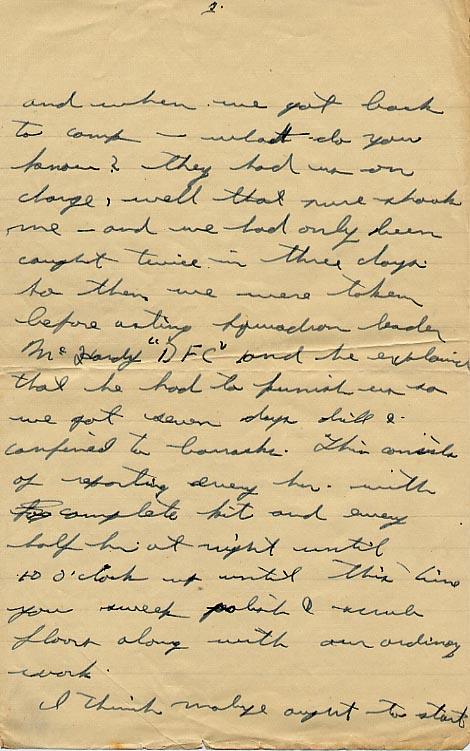 2.
and when we got back
to camp – what do you
know? they had us on
charge, well that sure shook
me – and we had only been
caught twice in three days.
So then we were taken
before acting Squadron leader
McHardy "DFC" and he explained
that he had to punish us so
we got seven days drill &
confined to barracks. This consists
of reporting every hr. with
complete kit and every
half hr. at night until
10 o'clock up until this time
you sweep polish & scrub
floors along with our ordinary
work.
I think maybe ought to start